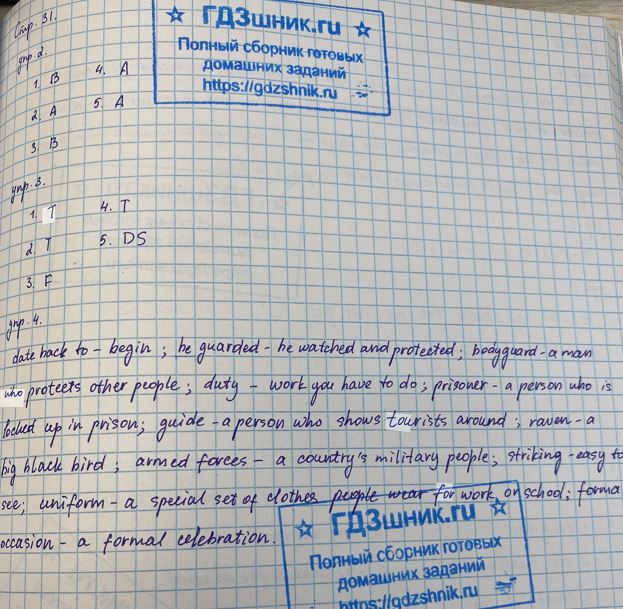 Стр. 31.
☆ ГДЗшник.ru ☆
Полный сборник готовых
домашних заданий
https://gdzshnik.ru
упр. 2.
1. B 4. A
2. A 5. A
3. B
упр. 3.
1. T 4. T
2. T 5. DS
3. F
упр. 4.
date back to – begin ; he guarded – he watched and protected ; bodyguard – a man
who protects other people ; duty – work you have to do ; prisoner – a person who is
locked up in prison; guide – a person who shows tourists around ; raven – a
big black bird ; armed forces – a country's military people; striking – easy to
see; uniform – a special set of clothes people wear for work or school; forma
occasion – a formal celebration.
☆ ГДЗшник.ru ☆
Полный сборник готовых
домашних заданий
https://gdzshnik.ru